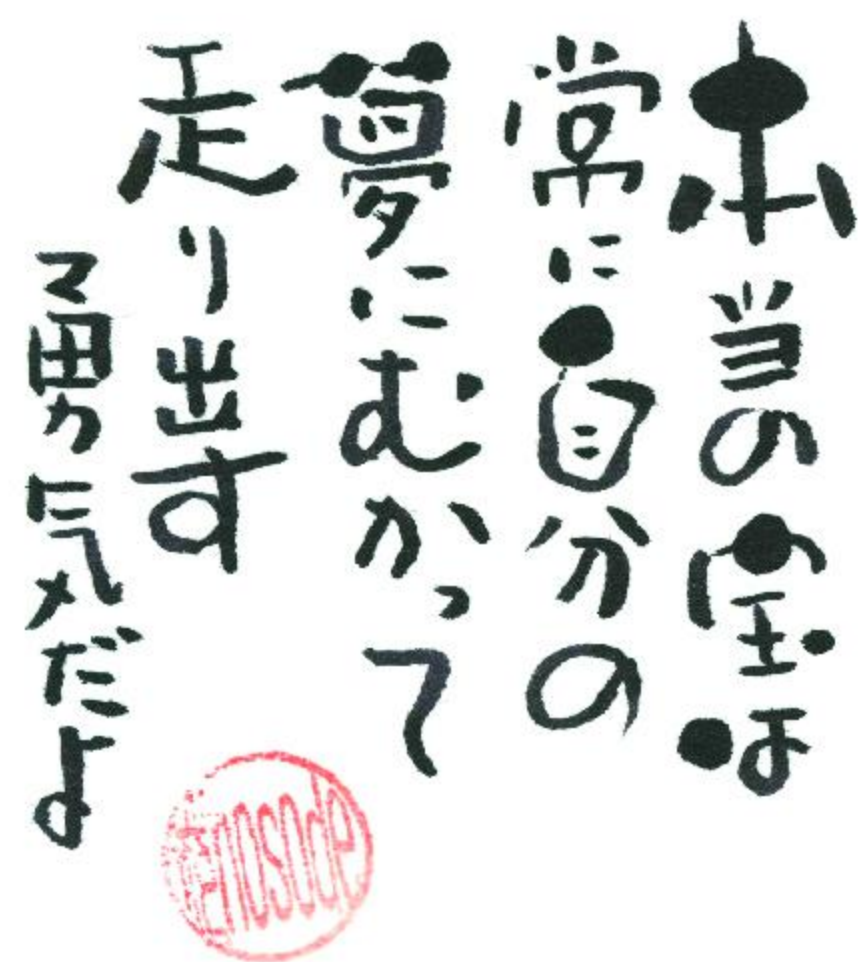 本当の宝は
常に自分の
夢にむかって
走り出す
勇気だよ
enosode